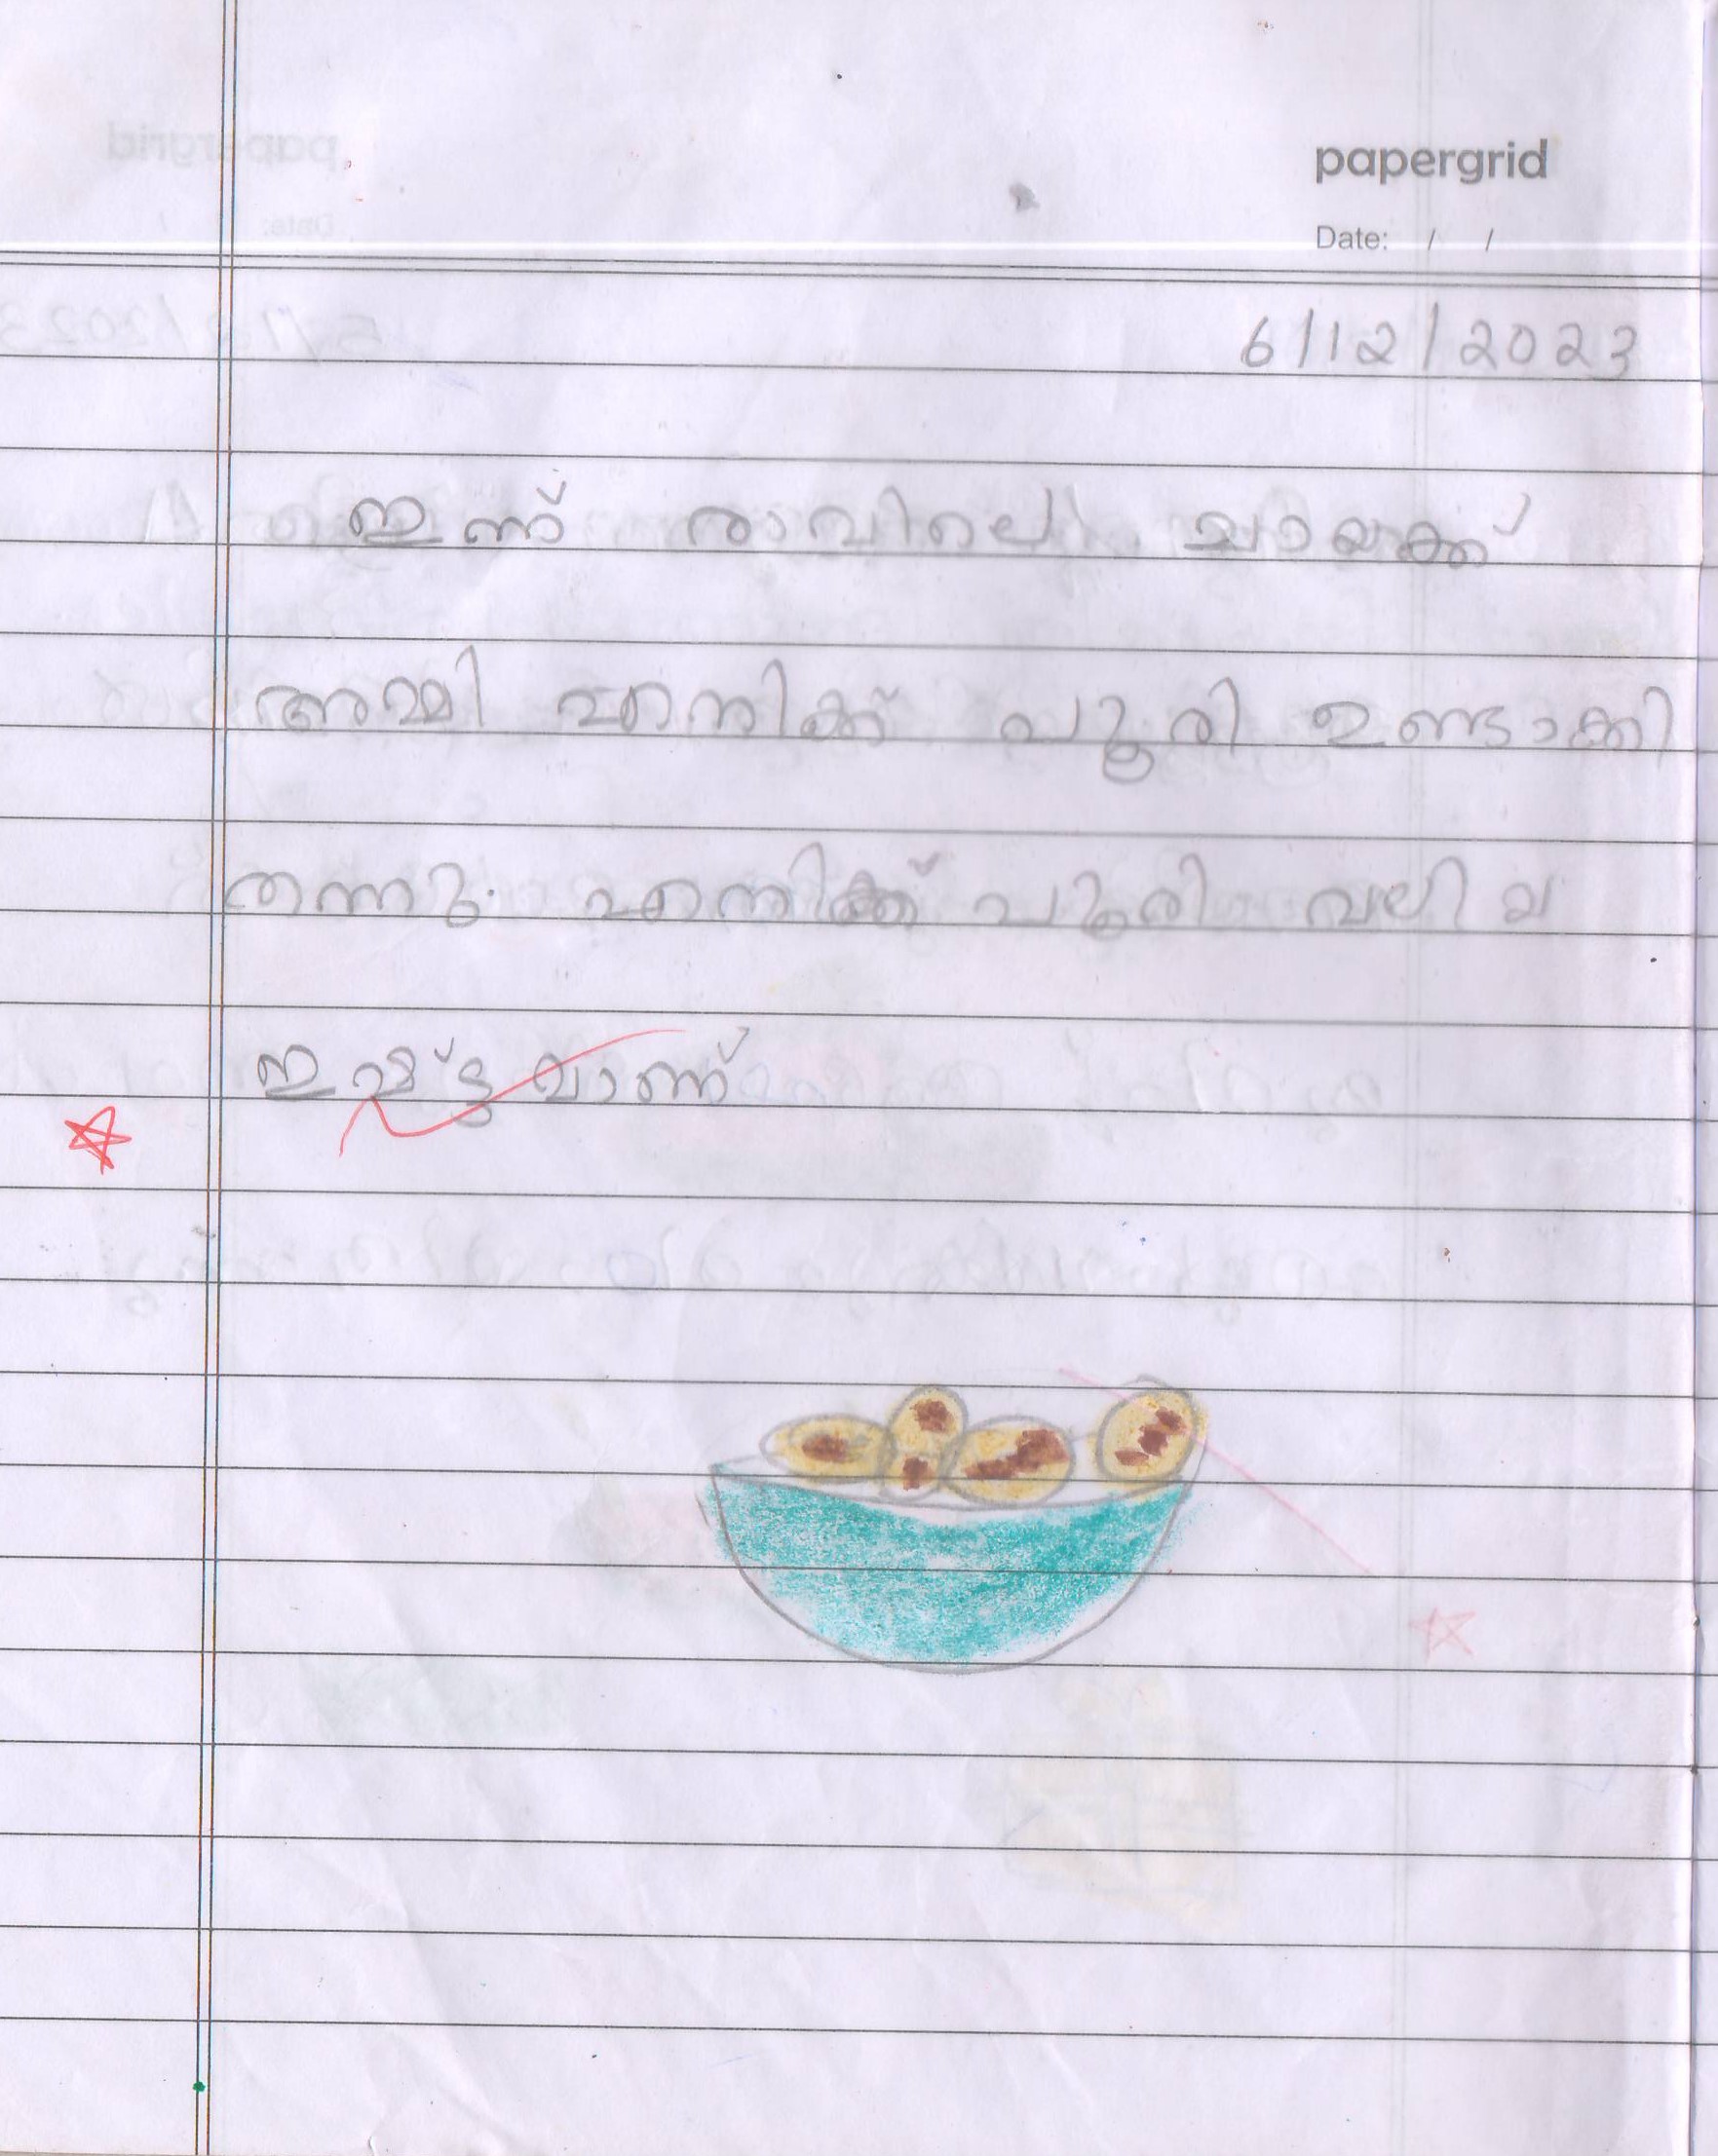 papergrid
Date: / /
6/12/2023
ഇന്ന് രാവിലെ ചായക്ക്
അമ്മി എനിക്ക് പൂരി ഉണ്ടാക്കി
തന്നു. എനിക്ക് പൂരി വലിയ
ഇഷ്ട്ടമാണ്